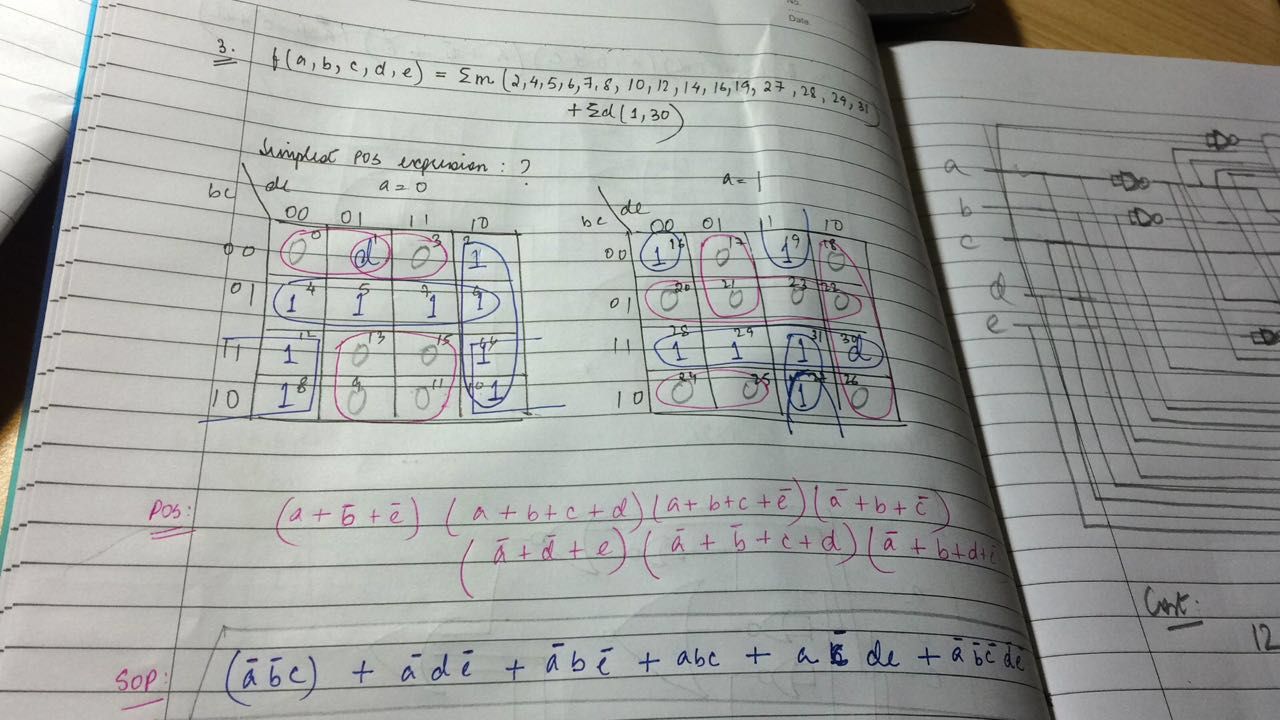 No.
Date
3. f(a,b,c,d,e) = Σm(2,4,5,6,7,8,10,12,14,16,19,27,28,29,31)
+Σd(1,30)
Simplest POS expression : ?
bc de a=0
00 01 11 10
00 0 0 d 1 0 3 1 2
01 1 4 1 5 1 7 1 6
11 1 12 0 13 0 15 1 14
10 1 8 0 9 0 11 1 10
bc de a=1
00 01 11 10
00 1 16 0 17 1 19 0 18
01 0 20 0 21 0 23 0 22
11 1 28 1 29 1 31 d 30
10 0 24 0 25 1 27 0 26
POS: (a+b̄+ē) (a+b+c+d)(a+b+c+ē)(ā+b+c̄)
(ā+d̄+e)(ā+b̄+c+d)(ā+b+d+ē
SOP: (āb̄c) + ādē + ābē + abc + a c̄ de + āb̄c̄d̄ē
a
b
c
d
e
Cost:
12